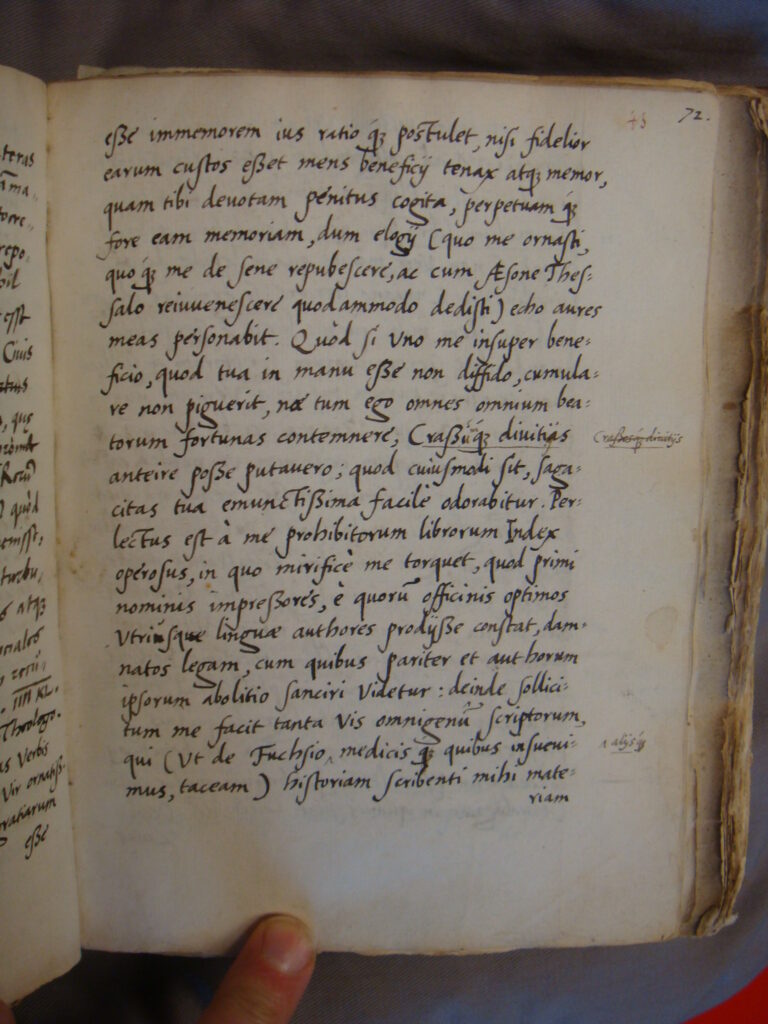 72.
esse immemorem ius ratio q́ꝫ postulet, nisi fidelior
earum custos esset mens beneficij tenax atqꝫ memor,
quam tibi devotam penitus cogita, perpetuam q́ꝫ
fore eam memoriam, dum elogij (quo me ornasti,
quo q́ꝫ me de sene repubescere, ac cum Æsone Thes-
salo reiuuenescere quodammodo dedisti) echo aures
meas personabit. Quòd si Vno me insuper bene-
ficio, quod tua in manu esse non diffido, cumula-
re non piguerit, næ tum ego omnes omnium bea-
torum fortunas contemnere, Crassiq́ꝫ diuitias
Crassesq́ꝫ diuitijs
anteire posse putauero; quod cuiusmodi sit, saga-
citas tua emunctissima facilè odorabitur. Per-
lectus est à me prohibitorum librorum Index
operosus, in quo mirificè me torquet, quod primi
nominis impressores, è quorũ officinis optimos
Vtriusque linguæ authores prodijsse constat, dam-
natos legam, cum quibus pariter et authorum
ipsorum abolitio sanciri Videtur: deinde sollici-
tum me facit tanta Vis omnigenũ scriptorum,
qui (Vt de Fuchsio ‸ medicis q́ꝫ quibus insueui-
‸ alijs q́ꝫ
mus, taceam) historiam scribenti mihi mate-
riam